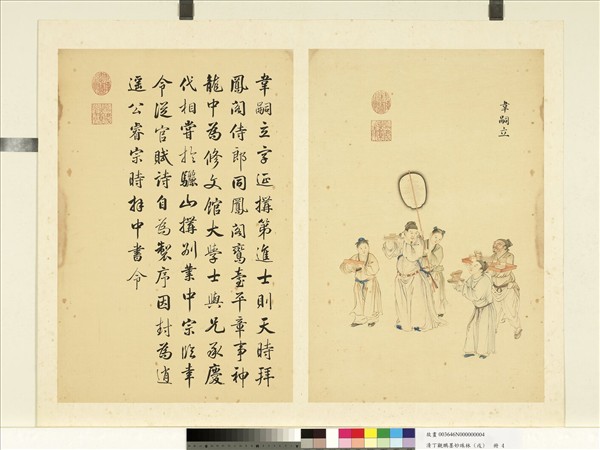 韋嗣立
韋嗣立字延搆第進士則天時拜
鳳閣侍郎同鳳閣鸞臺平章事神
龍中為修文館大學士與兄承慶
代相嘗於驪山搆別業中宗臨幸
令從官賦詩自為製序因封為逍
遙公睿宗時拜中書令
故畫 003646N000000004
清丁觀鵬墨妙珠林（戌） 冊 4